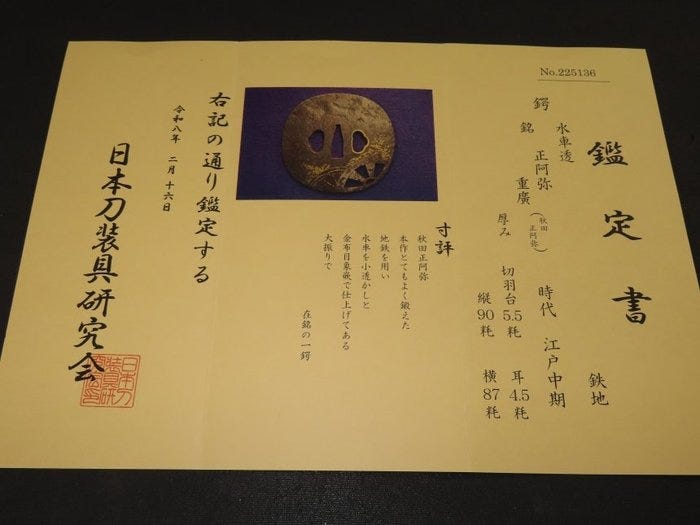 No.225136
鑑定書
鉄地
水車透
鍔
銘 正阿弥 重廣 (秋田 正阿弥)
時代 江戸中期
厚み 切羽台 5.5粍 耳 4.5粍
縦 90粍 横 87粍
寸評
秋田正阿弥
本作とてもよく鍛えた
地鉄を用い
水車を小透かしと
金布目象嵌で仕上げてある
大振りで
在銘の一鍔
右記の通り鑑定する
令和八年 二月十六日
日本刀装具研究会